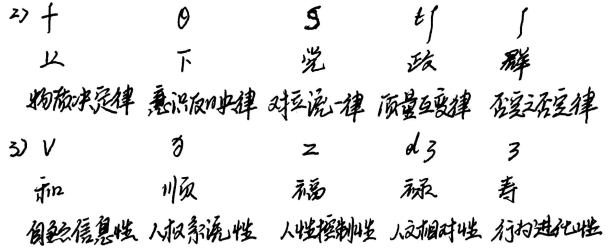 2) f θ s tʃ ʃ
上 下 党 政 群
物质决定律 意识反映律 对立统一律 质量互变律 否定之否定律
3) v ð z dʒ ʒ
和 顺 福 禄 寿
自然信息性 人权系统性 人性控制性 人文相对性 行为进化性